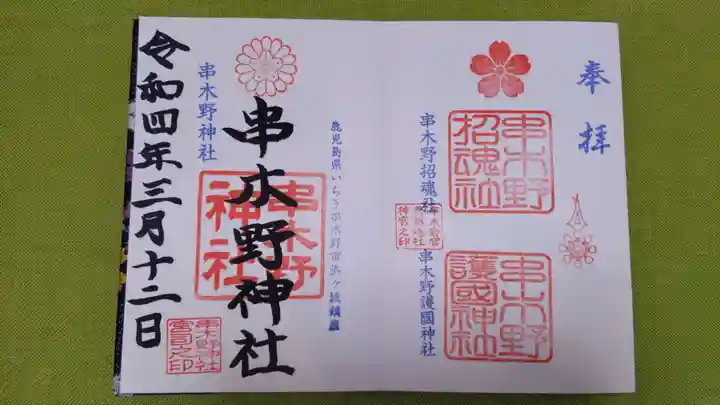 奉拝
串木野招魂社
串木野護國神社
串木野招魂社
串木野護國神社
鹿児島県いちき串木野市浜ヶ城鎮座
串木野神社
串木野神社
串木野神社
串木野神社宮司之印
令和四年三月十二日